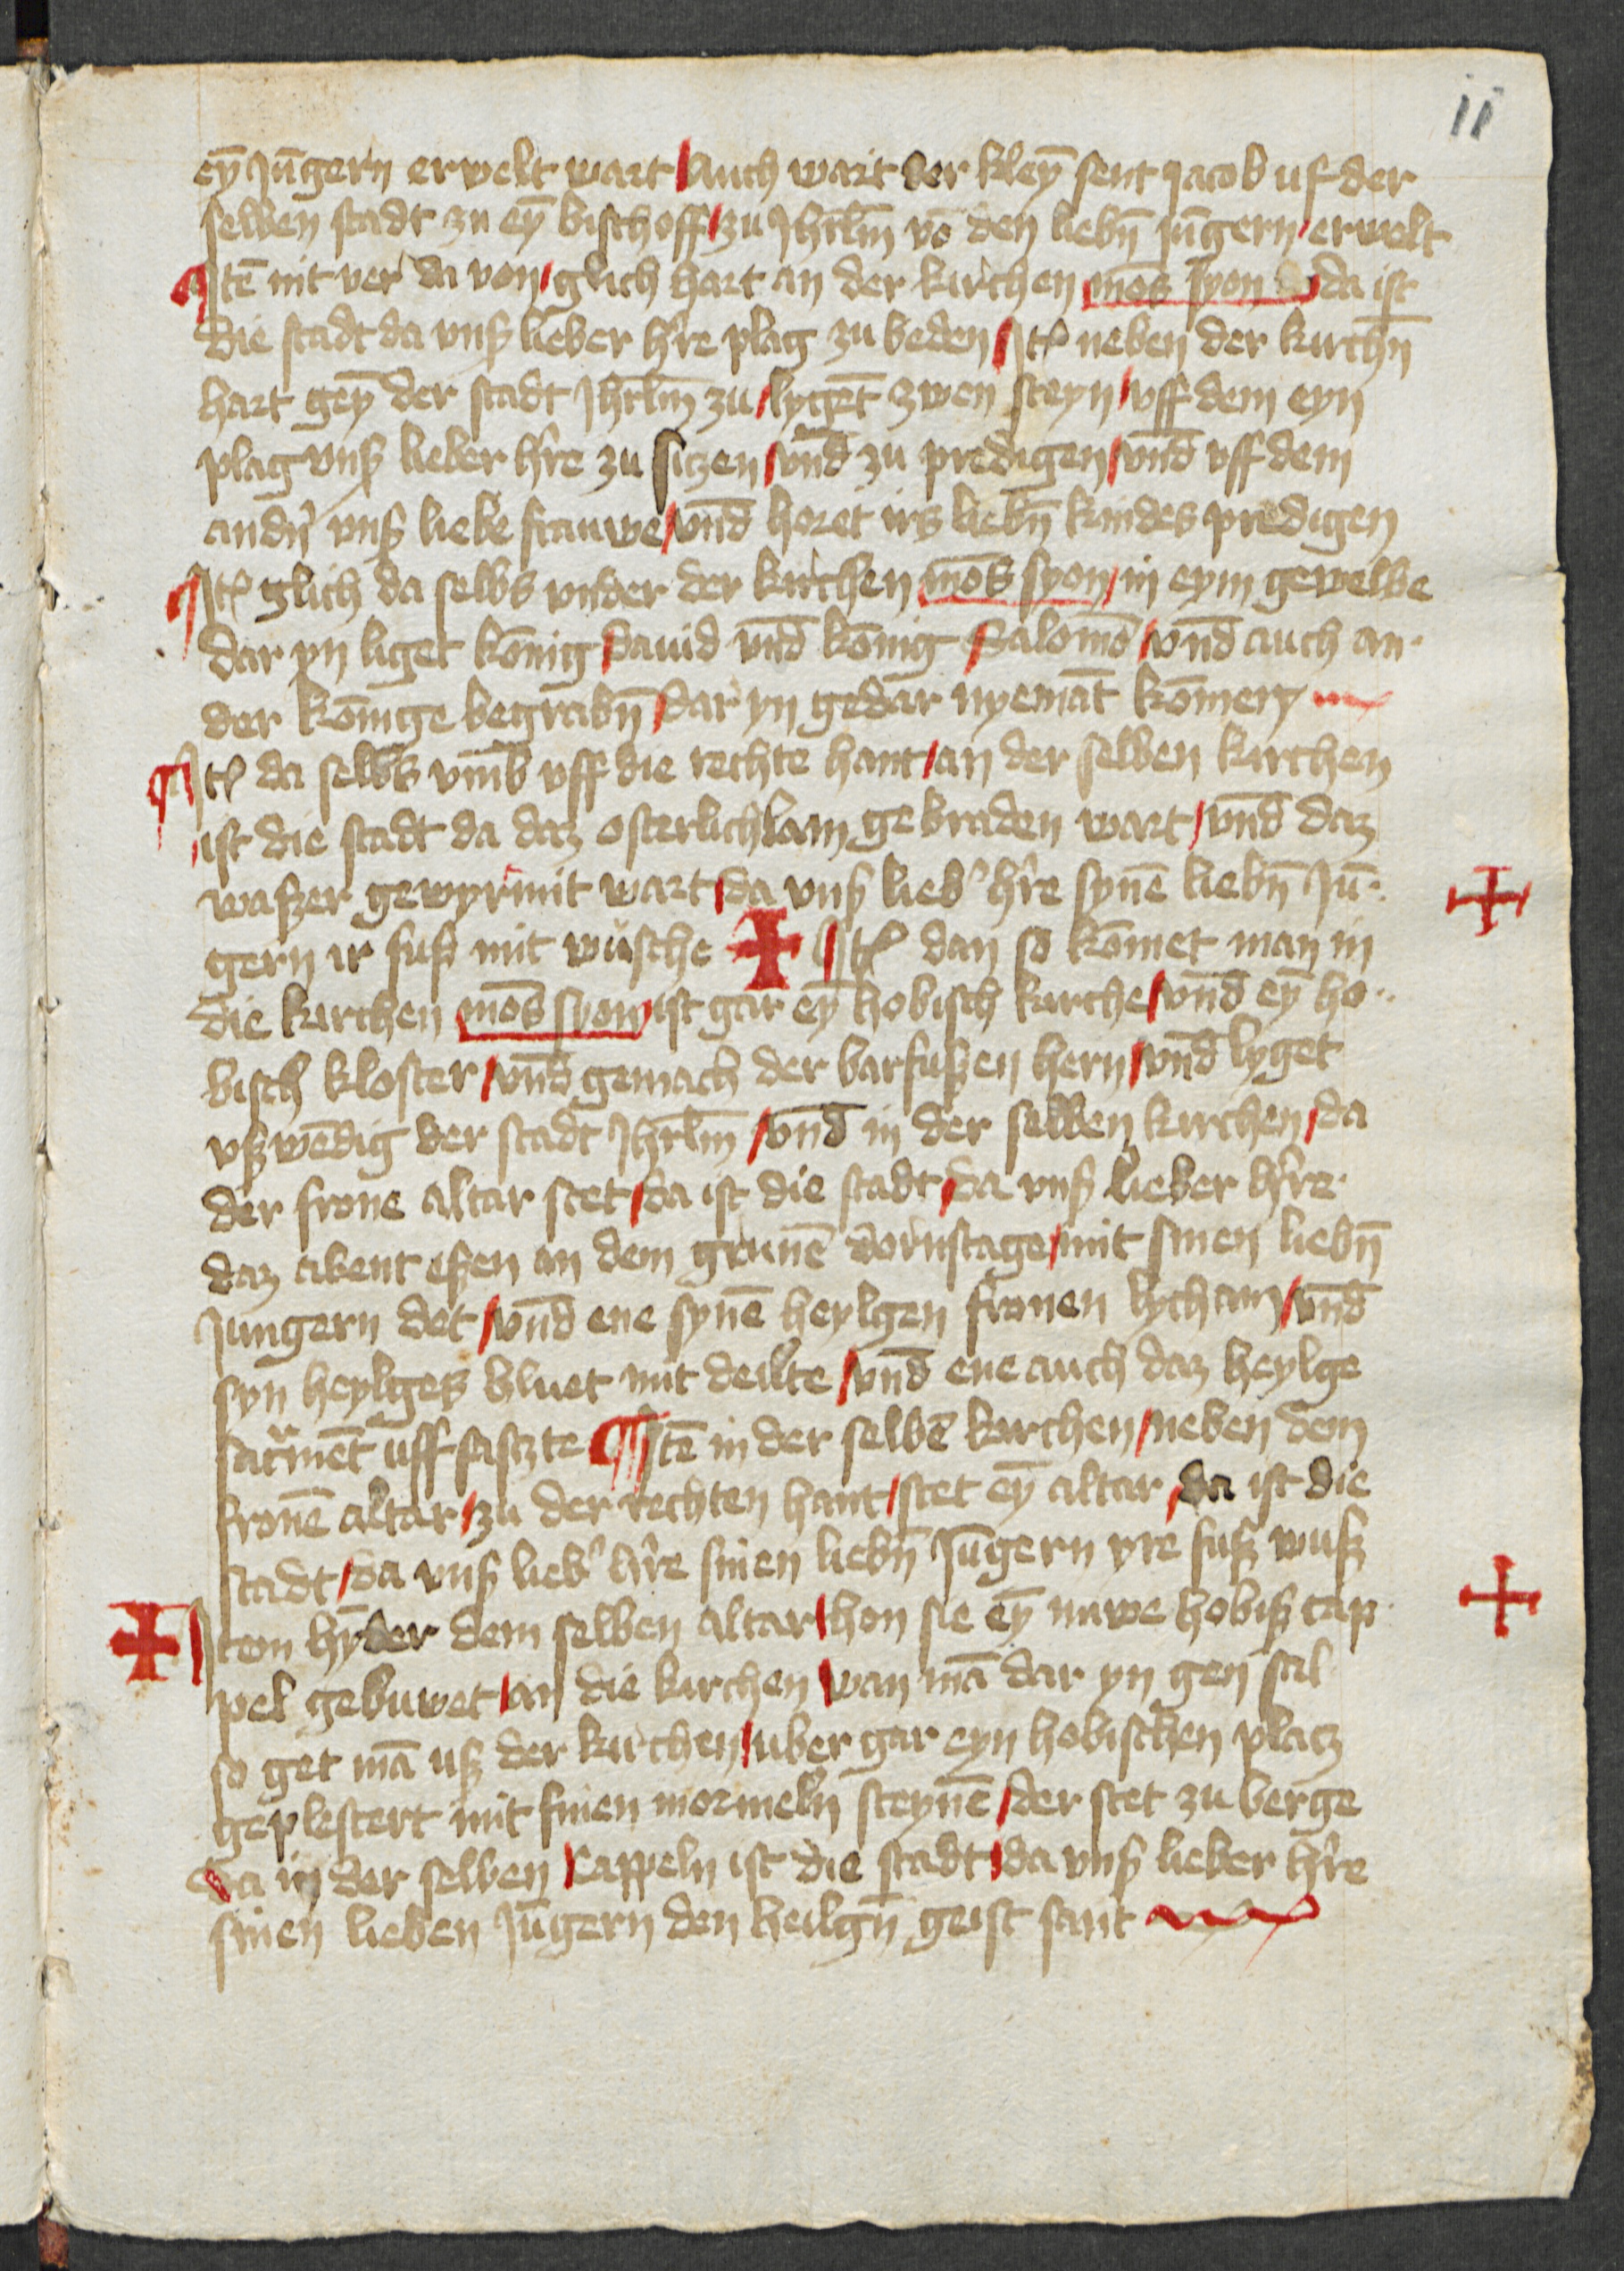 11
eȳ Jūgern erwelt wart / Auch wart der kleȳ sent Jacob uf der
selben stadt zu eȳ bischoff / zu Jhrlm̄ vō den liebn̄ Jūgern / erwelt
¶ Itē nit ver da von / glich hart an der kirchen / mōs syon / da ist
die stadt da vnß lieber hˀre plag zu beden / Itꝫ neben der kirchn̄
hart geȳ der stadt Jhrlm̄ zu / lygēt zwen steyn / vff dem eyn
plag vnß lieber hˀre zu sitzen / vnd̄ zu predigen / vnd̄ vff dem
andˀn vnß liebe frauwe / vnd̄ horet irs liebn̄ kindes predigen
¶ Itꝫ glich da selbs vnder der kirchen mōs syon / in eym gewelbe
dar yn liget kōnig Dauid vnd̄ kōnig Salomō / vnd̄ auch an-
der kōnige begrabn̄ / dar yn gedar nyemāt kōmen
¶ Itꝫ da selbs vmb̄ vff die rechte hant / an der selben kirchen
ist die stadt da daz osterlichlam gebraden wart / vnd̄ daz
waßer gewyrmit wart / da vnß liebˀ hˀre synē liebn̄ Jū-
gern ir fuß mit wūsche ✠ Itꝫ dan so kōmet man in
die kirchen mōs syon / ist gar eȳ hobisch kirche / vnd̄ eȳ ho-
bisch kloster / vnd̄ gemach der barfußen hern / vnd̄ lyget
vßwēdig der stadt Jhrlm̄ / vnd̄ in der selben kirchen / da
der frone altar stet / da ist die stadt / da vnß lieber hˀre
daz abent eßen an dem grunē dornstage / mit sinen liebn̄
Jungern det / vnd̄ ene synē heylgen fronen lycham / vnd̄
syn heylges bluet mit deilte / vnd̄ ene auch daz heylge
sacˀmēt uff satzte ¶ Itē in der selbē kirchen / neben dem
fronē altar / zu der rechten hant / stet eȳ altar / da ist die
stadt / da vnß liebˀ hˀre sinen liebn̄ Jūgern yre fuß wuß
✠ Item hȳder dem selben altar / hon sie eȳ nuwe hobiß cap-
pel gebuwet / an die kirchen / wan mā dar yn gen sal
so get mā uß der kirchen / uber gar eyn hobischen platz
geplestert mit finen mormeln steynē / der stet zu berge
Da in der selben Cappeln ist die stadt / da vnß lieber hˀre
sinen lieben Jūgern den heilgn̄ geist sant